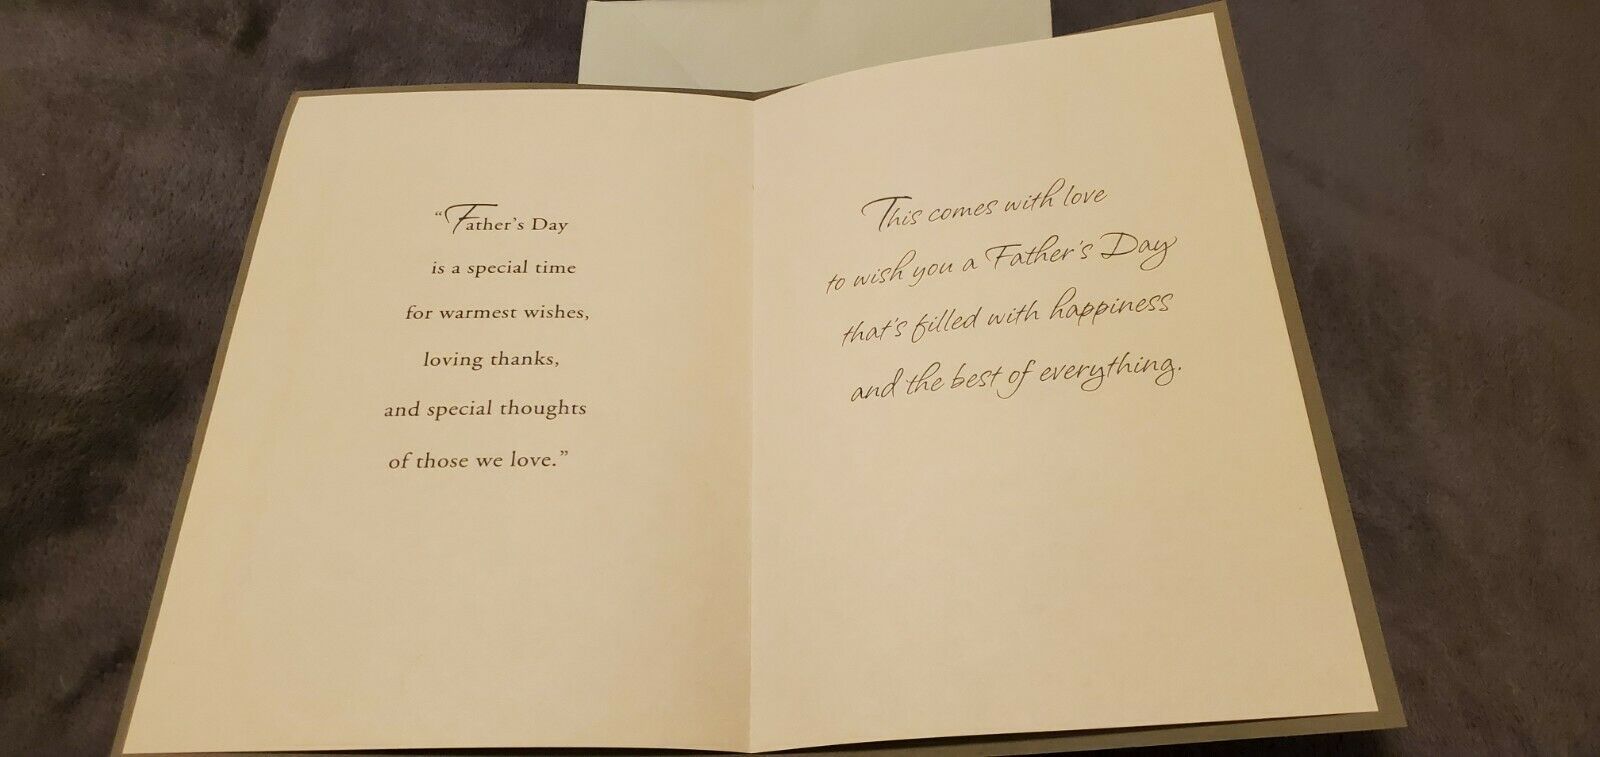 “Father's Day
is a special time
for warmest wishes,
loving thanks,
and special thoughts
of those we love.”
This comes with love
to wish you a Father's Day
that's filled with happiness
and the best of everything.